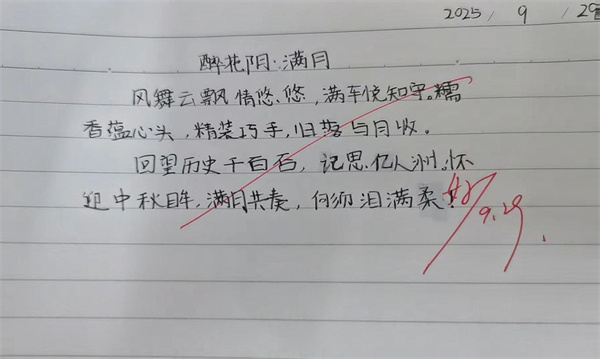 2025 / 9 / 29
醉花阴·满月
风舞云飘情悠悠,满车悦知守。糯
香蕴心头,精装巧手,旧落与月收。
回望历史千百石,记思忆人洲。怀
迎中秋眸,满月共奏,何须泪满柔!
好
9.29